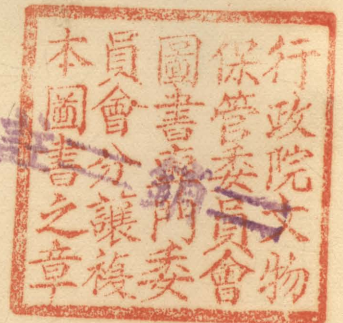 行政院文物
保管委員會
圖書專門委
員會分讓複
本圖書之章